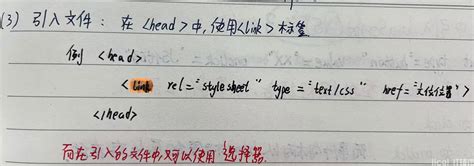 (3) 引入文件：在<head>中,使用<link>标签
例 <head>
<link rel="stylesheet" type="text/css" href="文件位置">
</head>
而在引入的文件中,只可以使用 选择器.